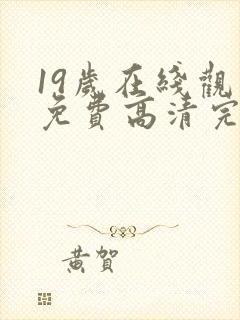 19歲在綫觀
免費高清完
黃賀